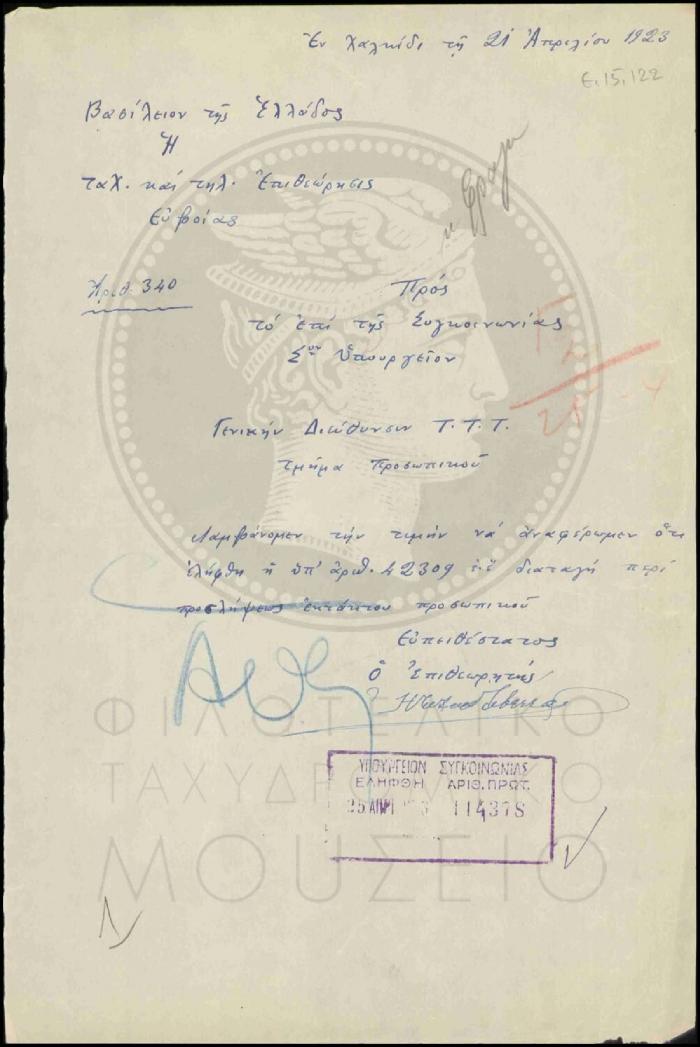 Ἐν Χαλκίδι τῇ 21 Ἀπριλίου 1923
Ε.15.122
Βασίλειον τῆς Ἑλλάδος
Ἡ
ταχ. καί τηλ. Ἐπιθεώρησις
Εὐβοίας
Ἀριθ. 340
Πρός
τό ἐπί τῆς Συγκοινωνίας
Σ<sup>τόν</sup> Ὑπουργεῖον
Γενικήν Διεύθυνσιν Τ.Τ.Τ.
τμῆμα Προσωπικοῦ
Λαμβάνομεν τήν τιμήν νά ἀναφέρωμεν ὅτι
ἐλήφθη ἡ ὑπ' ἀριθ. 42309 διαταγή περί
προσλήψεως ἐκτάκτου προσωπικοῦ
Εὐπειθέστατος
Ὁ Ἐπιθεωρητής
ΥΠΟΥΡΓΕΙΟΝ ΣΥΓΚΟΙΝΩΝΙΑΣ
ΕΛΗΦΘΗ ΑΡΙΘ. ΠΡΩΤ.
25 ΑΠΡΙ 114378
ΦΙΛΟΤΕΛΙΚΟ
ΤΑΧΥΔΡΟΜΙΚΟ
ΜΟΥΣΕΙΟ